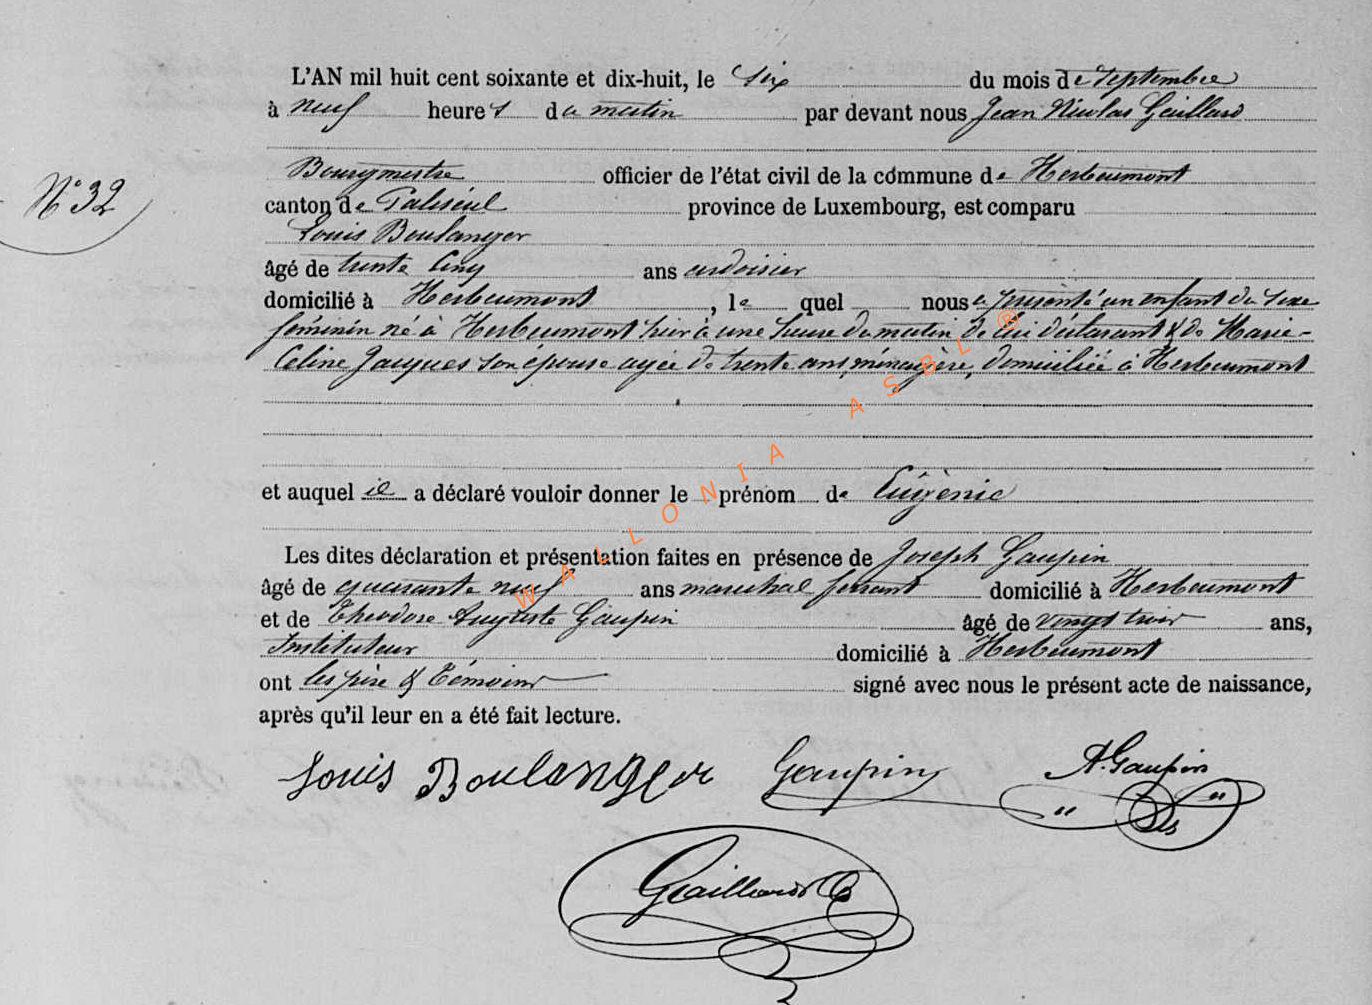 L'AN mil huit cent soixante et dix-huit, le six du mois de septembre
à neuf heures du matin par devant nous Jean Nicolas Gaillard
Bourgmestre officier de l'état civil de la commune de Herbeumont
N° 32
canton de Paliseul province de Luxembourg, est comparu
Louis Boulanger
âgé de trente cinq ans ardoisier
domicilié à Herbeumont, lequel nous a présenté un enfant du sexe
féminin né à Herbeumont hier à une heure du matin de lui déclarant & de Marie-
Céline Jacques son épouse agée de trente ans, ménagère, domiciliée à Herbeumont
et auquel il a déclaré vouloir donner le prénom de Eugènie
Les dites déclaration et présentation faites en présence de Joseph Gaupin
âgé de quarante neuf ans maréchal ferrant domicilié à Herbeumont
et de Théodore Auguste Gaupin âgé de vingt trois ans,
Instituteur domicilié à Herbeumont
ont les père & témoins signé avec nous le présent acte de naissance,
après qu'il leur en a été fait lecture.
Louis Boulanger Gaupin A. Gaupin
Gaillard
WALLONIA ASBL ®